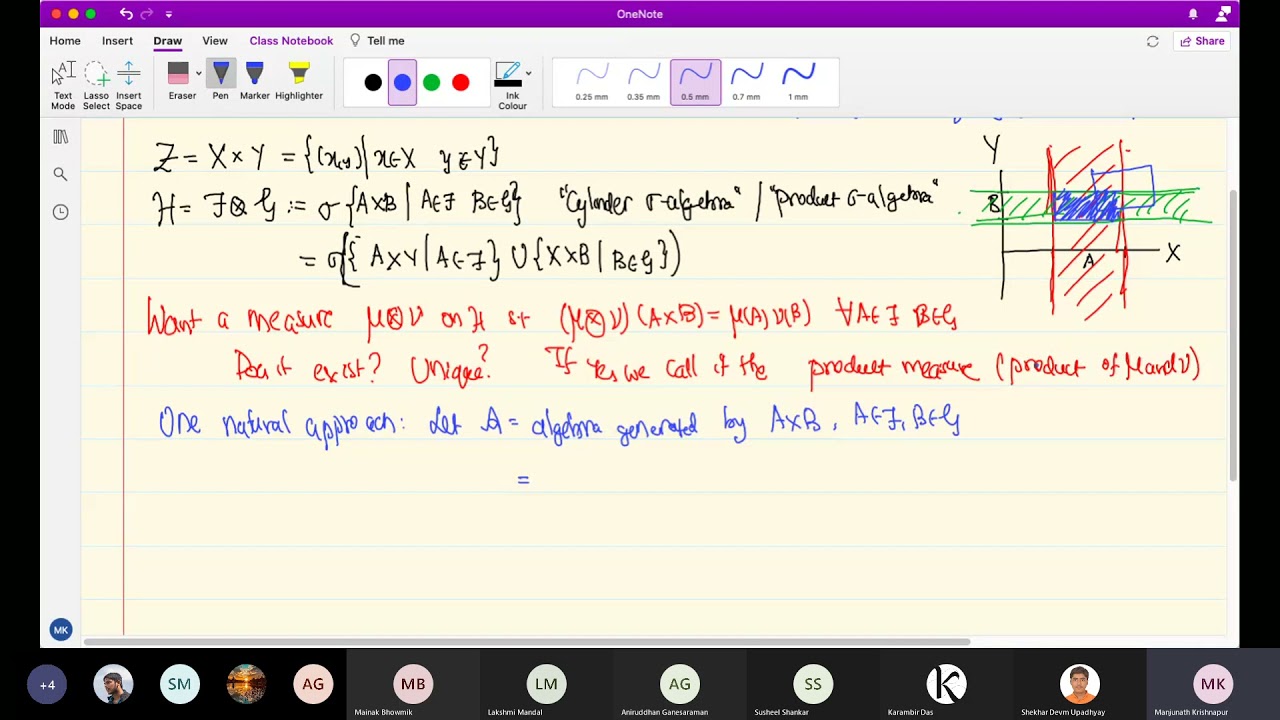 OneNote
Home Insert Draw View Class Notebook Tell me Share
Text Mode Lasso Select Insert Space Eraser Pen Marker Highlighter Ink Colour 0.25 mm 0.35 mm 0.5 mm 0.7 mm 1 mm
Z = X × Y = {(x,y) | x∈X y∈Y}
H = F ⊗ G := σ{A×B | A∈F B∈G} "Cylinder σ-algebra" / "product σ-algebra"
= σ({A×Y | A∈F} ∪ {X×B | B∈G})
Y
B
A
X
Want a measure μ⊗ν on H st (μ⊗ν)(A×B) = μ(A) ν(B) ∀A∈F B∈G
Does it exist? Unique? If Yes we call it the product measure (product of μ and ν)
One natural approach: Let A = algebra generated by A×B, A∈F, B∈G
=
MK
+4 SM AG MB LM AG SS K MK
Mainak Bhowmik Lakshmi Mandal Aniruddhan Ganesaraman Susheel Shankar Karambir Das Shekhar Devm Upadhyay Manjunath Krishnapur